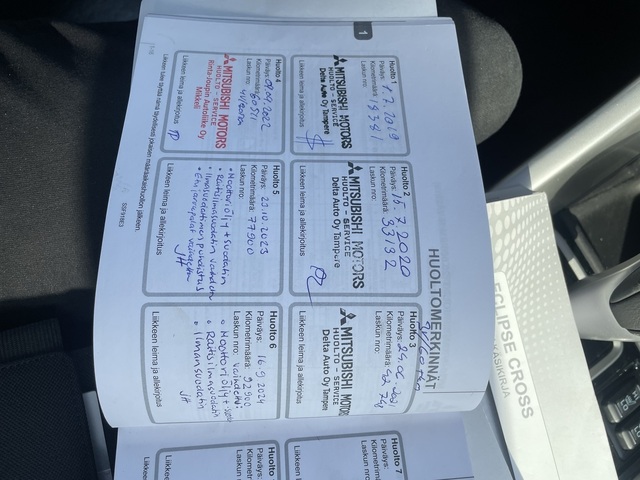 HUOLTOMERKINNÄT
1
Huolto 1
Päiväys: 1.7.2019
Kilometrimäärä: 19381
Laskun nro:
MITSUBISHI MOTORS
HUOLTO - SERVICE
Delta Auto Oy Tampere
Liikkeen leima ja allekirjoitus
Huolto 2
Päiväys: 15.7.2020
Kilometrimäärä: 33132
Laskun nro:
MITSUBISHI MOTORS
HUOLTO - SERVICE
Delta Auto Oy Tampere
Liikkeen leima ja allekirjoitus
Huolto 3
Päiväys: 24.06.
Kilometrimäärä:
Laskun nro:
MITSUBISHI MOTOR
HUOLTO - SERVICE
Delta Auto Oy Tamper
Liikkeen leima ja allekirjoitus
Huolto 4
Päiväys: 09.09.2022
Kilometrimäärä: 60511
Laskun nro:
MITSUBISHI MOTORS
HUOLTO - SERVICE
Rinta-Joupin Autoliike Oy
Mikkeli
Liikkeen leima ja allekirjoitus
Huolto 5
Päiväys: 23.10.2023
Kilometrimäärä: 77900
Laskun nro:
• Moottoriöljy + suodatin
• Raitisilmasuodatin vaihdettu
• Ilmansuodattimen puhdistus
• Etujarrupalat
JH
Liikkeen leima ja allekirjoitus
Huolto 6
Päiväys: 16.9.2024
Kilometrimäärä: 92900
Laskun nro: vaihdettu
• Moottoriöljy +
• Raitisilmasuodatin
• Ilmansuodatin
JH
Liikkeen leima ja allekirjoitus
Liikkeen tulee täyttää nämä täydellisesti jokaisen määräaikaishuollon jälkeen.
Huolto 7
Päiväys:
Kilometrim
Laskun nro
Päiväys:
Kilometrim
Laskun n
Liikke
ECLIPSE CROSS
KÄSIKIRJA